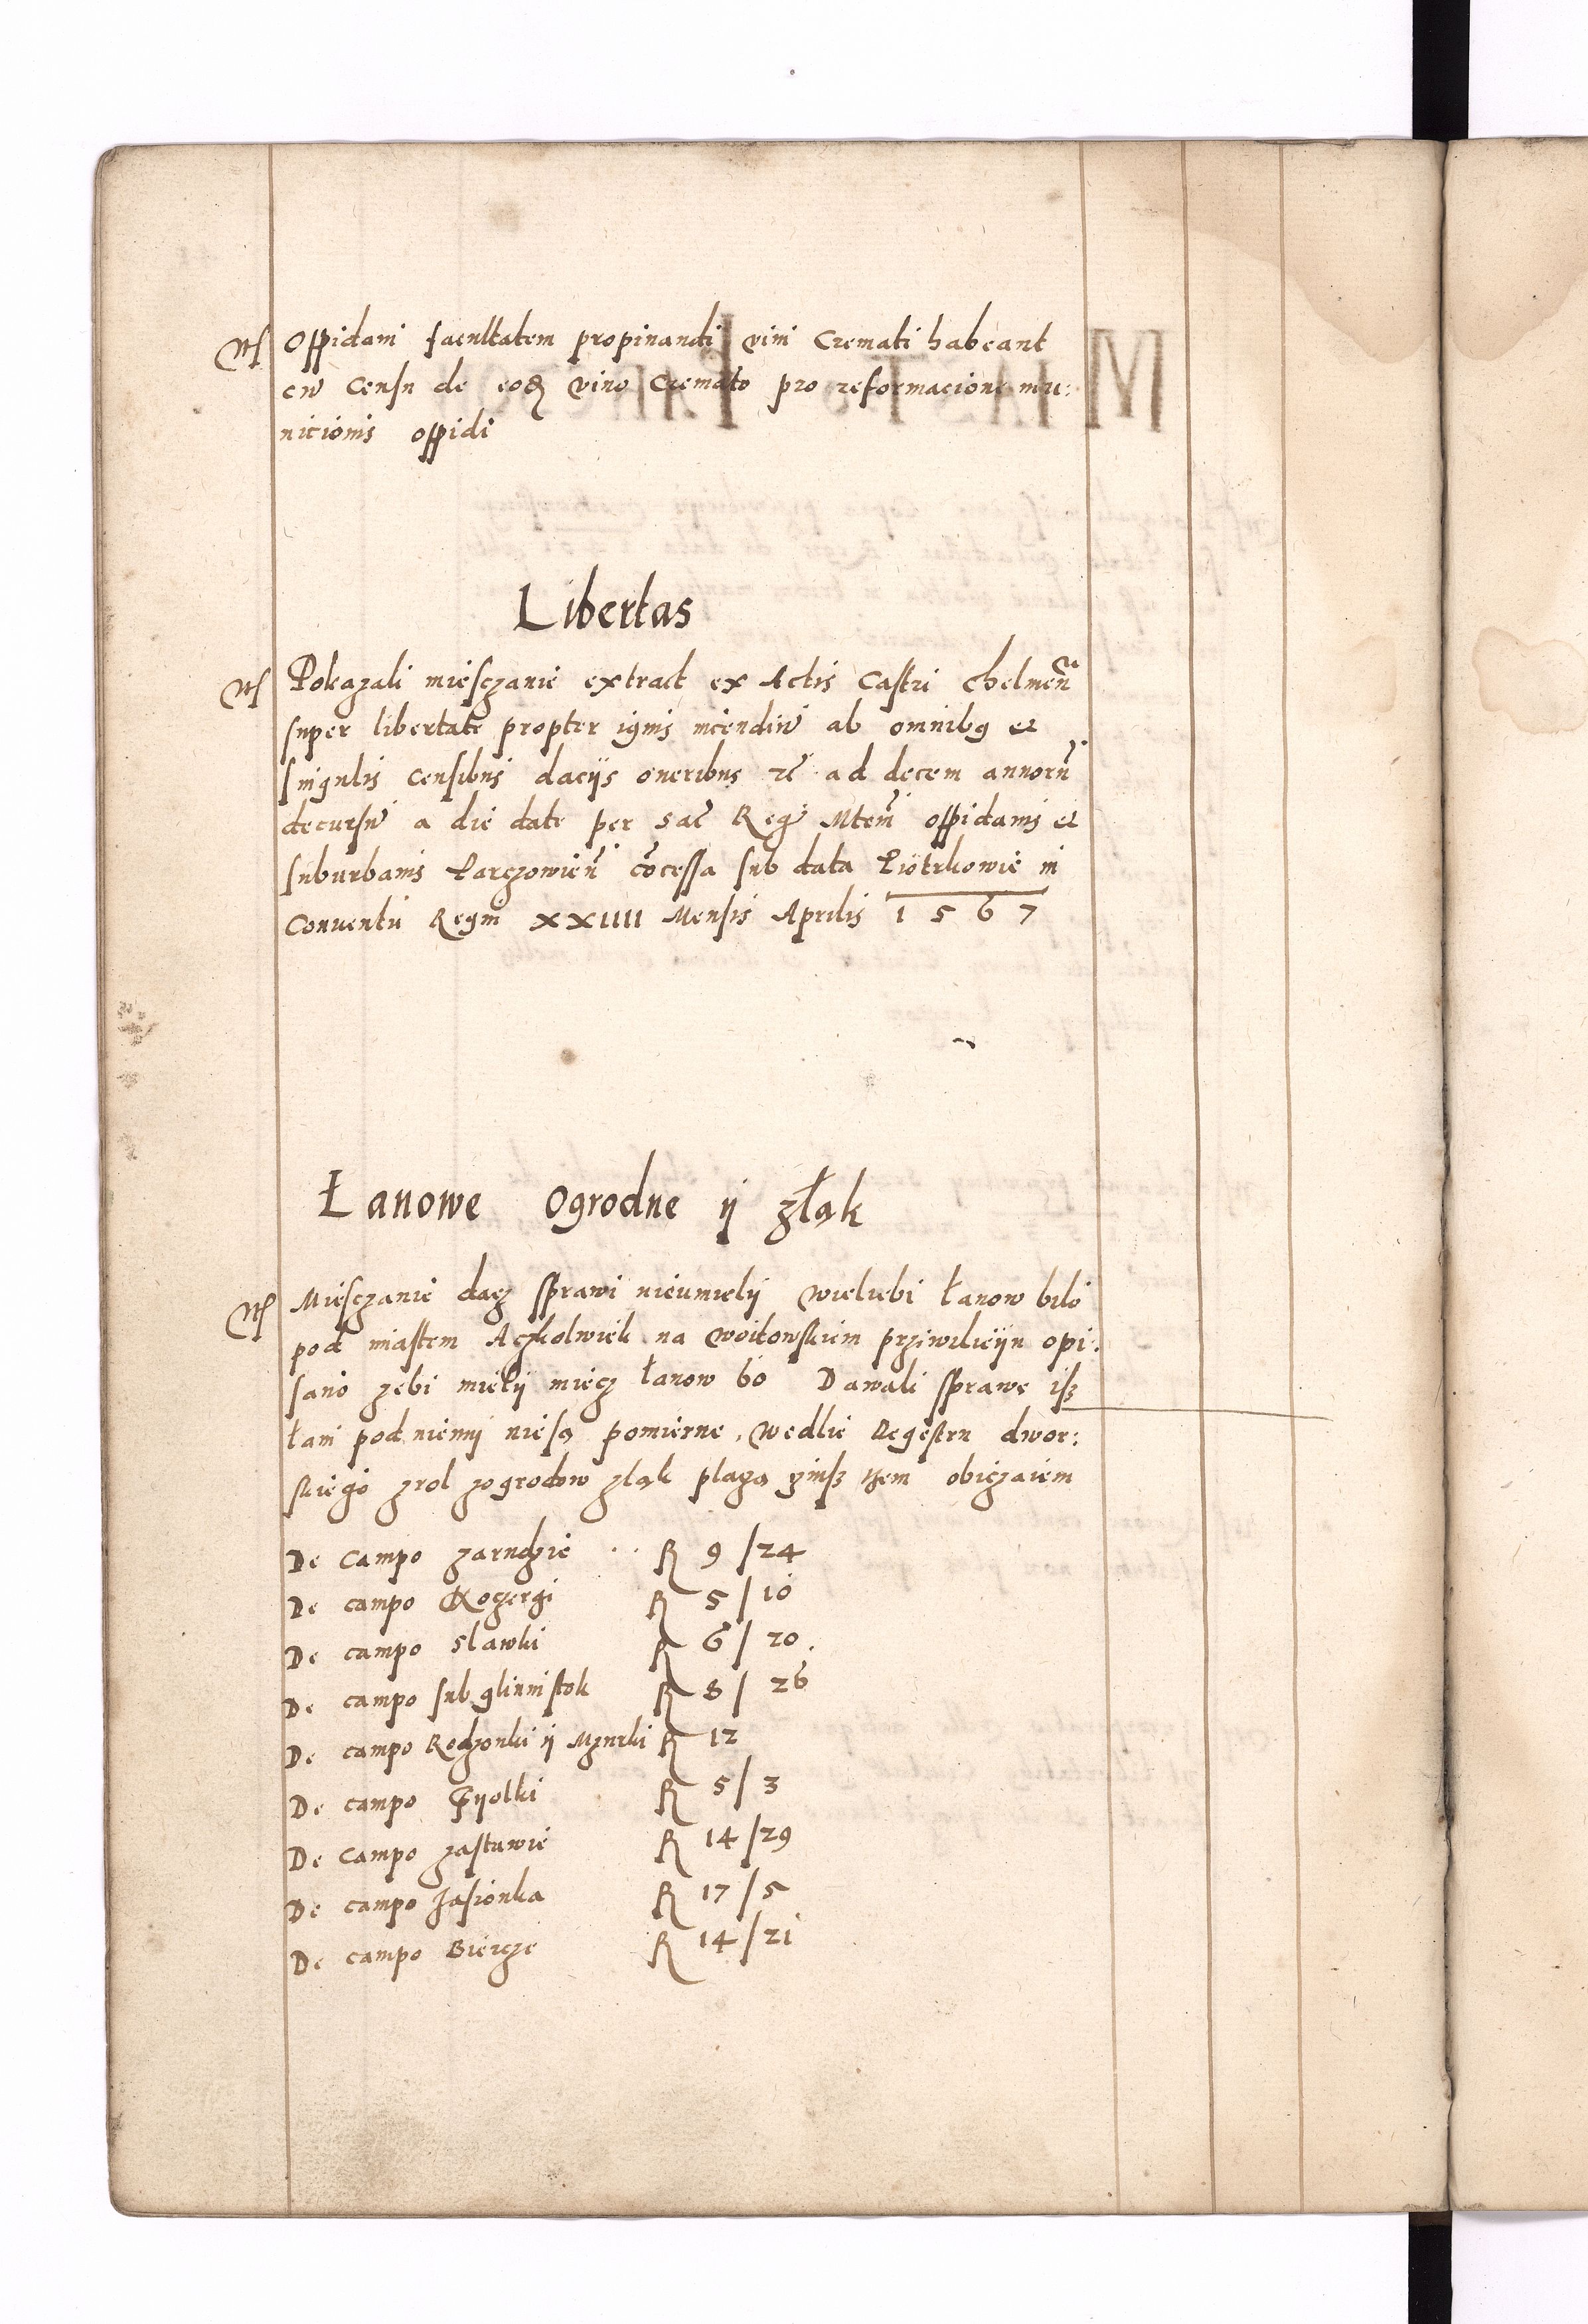 Oppidani facultatem propinandi vini Cremati habeant
cū Censu de eodē vino Cremato pro reformacione mu:
nicionis oppidi
Libertas
Pokazali miesczanie extract ex Actis Castri Chelmeñ
super libertate propter ignis incendiū ab omnibꝯ et
singulis censibus daciis oneribus ad decem annorū
decursū a die date per Sac̄ Reg Mtem̄ oppidanis et
suburbanis Parczowieñ cōcessa sub data Piotrkowie in
Conventu Regni XXIIII Mensis Aprilis 1567
Łanowe Ogrodne ij złąk
Miesczanie dacz sprawi nieumielij wieliebi Łanow bilo
pod miastem Aczkolwiek na woitowskiem prziwilieiju opi:
sano zebi mielij miecz łanow 60 Dawali sprawe isz
łani pod niemij niesą pomierne, wedlie Regestru dwor:
skiego zrol zogrodow złąk placzą czinsz tem obiczaiem
De Campo zarudzie R 9/24
De campo Koczergi R 5/10
De campo Slawki R 6/20.
De campo sub glinnistok R 8/26
De campo Rodzonki ij Mznrki R 12
De campo R 5/3
De Campo zastawie R 14/29
De campo Jasionka R 17/5
De campo Biercze R 14/21